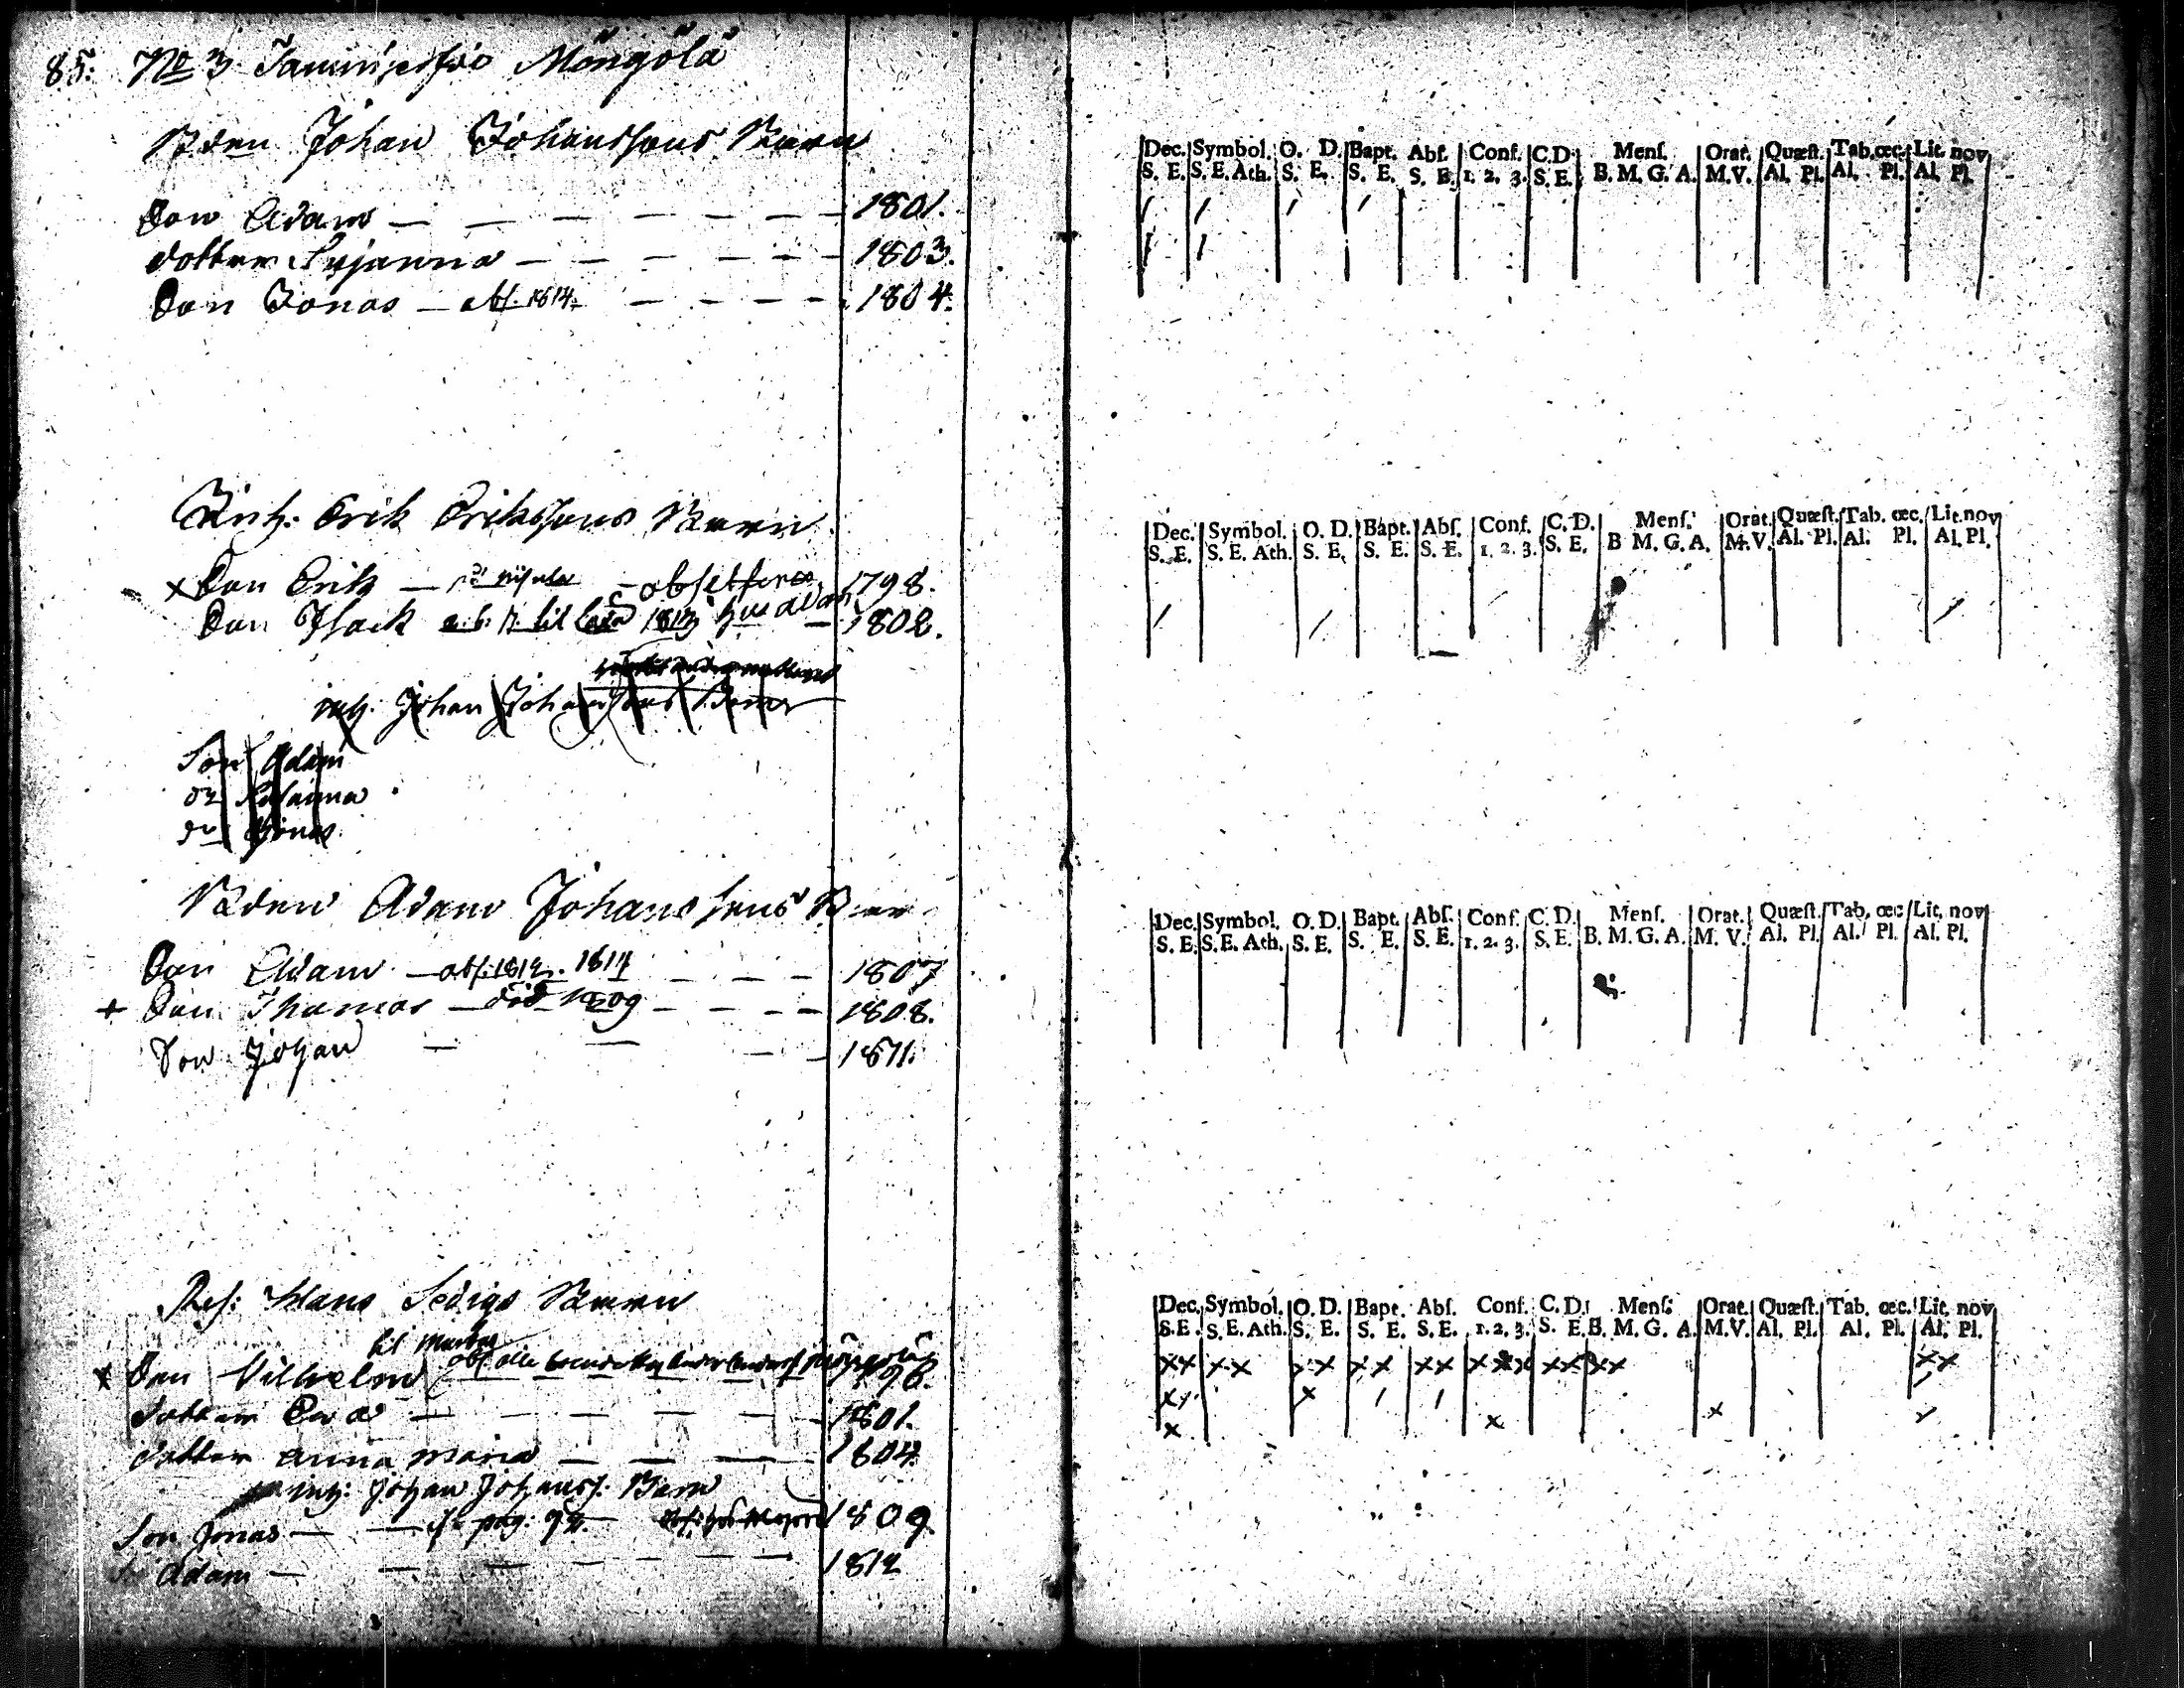 85. No 3 Mongölä
Bden Johan Johanssons Barn
Son Adam — — — — — — 1801.
dotter Susanna — — — — — — 1803.
Son Jonas — abs. 1814. — — — — 1804.
Dec. Symbol. O. D. Bapt. Abſ. Conf. C.D. Menſ. Orat. Quæſt. Tab. œc. Lit. nov
S. E. S. E. Ath. S. E. S. E. S. E. 1. 2. 3. S. E. B. M. G. A. M.V. Al. Pl. Al. Pl. Al. Pl.
Inh: Erik Erikssons Barn
x Son Erik — 1798.
Son Isack 1813 — 1802.
Dec. Symbol. O. D. Bapt. Abſ. Conſ. C. D. Menſ. Orat. Quæſt. Tab. œc. Lit. nov
S. E. S. E. Ath. S. E. S. E. S. E. 1. 2. 3. S. E. B M. G. A. M.V. Al. Pl. Al. Pl. Al. Pl.
inh. Johan Johanssons Barn
Son Adam
do Susanna
do Jonas
Bden Adam Johanssons Barn
Son Adam — abs. 1812. 1814 — — — 1807
+ Son Thomas — död 1809 — — — 1808.
Son Johan — — — — 1811.
Dec. Symbol. O. D. Bapt. Abſ. Conſ. C. D. Menſ. Orat. Quæſt. Tab. œc Lit. nov
S. E. S. E. Ath. S. E. S. E. S. E. 1. 2. 3. S. E. B. M. G. A. M. V. Al. Pl. Al. Pl. Al. Pl.
Klans Sedigs Barn
x Son Vilhelm 1798.
dotter Eva — — — — — 1801.
dotter Anna Maria — — — 1804.
inh: Johan Johanss. Barn
Son Jonas — — pag. 92. 1809
Adam — — — — — — 1812
Dec. Symbol. O. D. Bapt. Abſ. Conſ. C. D. Menſ. Orat. Quæſt. Tab. œc. Lit. nov
S. E. S. E. Ath. S. E. S. E. S. E. 1. 2. 3. S. E. B. M. G. A. M.V. Al. Pl. Al. Pl. Al. Pl.